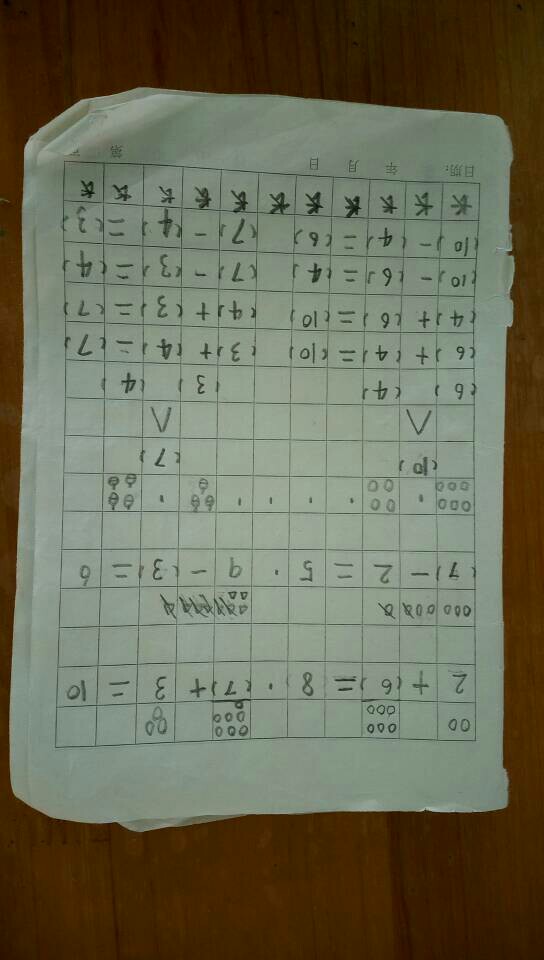 2 + (6) = 8 . (7) + 3 = 10
(7) - 2 = 5 . 9 - (3) = 6
(10) (7)
(6) (4) (3) (4)
(6) + (4) = (10) (3) + (4) = (7)
(4) + (6) = (10) (4) + (3) = (7)
(10) - (6) = (4) (7) - (3) = (4)
(10) - (4) = (6) (7) - (4) = (3)
长 长 长 长 长 长 长 长 长 长 长
日期: 年 月 日 第